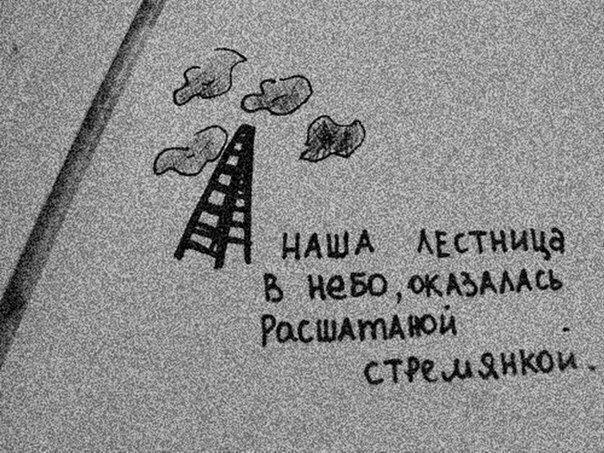 НАША ЛЕСТНИЦА
В НЕБО, ОКАЗАЛАСЬ
РАСШАТАНОЙ
СТРЕМЯНКОЙ.